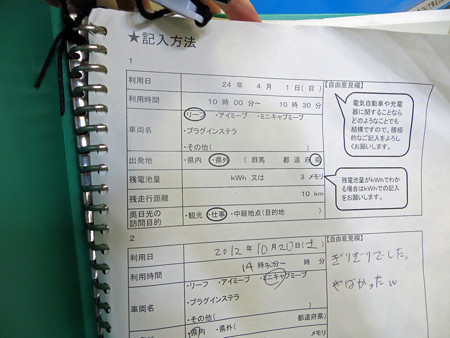 ★記入方法
1
利用日 24 年 4 月 1 日 ( 日 ) 【自由意見欄】
利用時間 10 時 00 分〜 10 時 30 分
車両名 ・リーフ ・アイミーブ ・ミニキャブミーブ
・プラグインステラ
・その他( )
電気自動車や充電
器に関することなら
どのようなことでも
結構ですので、積極
的なご記入をよろし
くお願いします。
出発地 ・県内 ・県外 ( 群馬 都 道 府 県 )
残電池量 kWh 又は 3 メモリ
残走行距離 10 km
奥日光の
訪問目的 ・観光 ・仕事 ・中継地点(目的地 )
残電池量がkWhでわか
る場合はkWhでの記入
をお願いします。
2
利用日 2012 年 10 月 20 日(土) 【自由意見欄】
利用時間 14 時 分〜 時 分
車両名 ・リーフ ・アイミーブ ・ミニキャブミーブ
・プラグインステラ
・その他( )
ぎりぎりでした。
やばかったw
・県内 ・県外( 都道府県)
メモリ